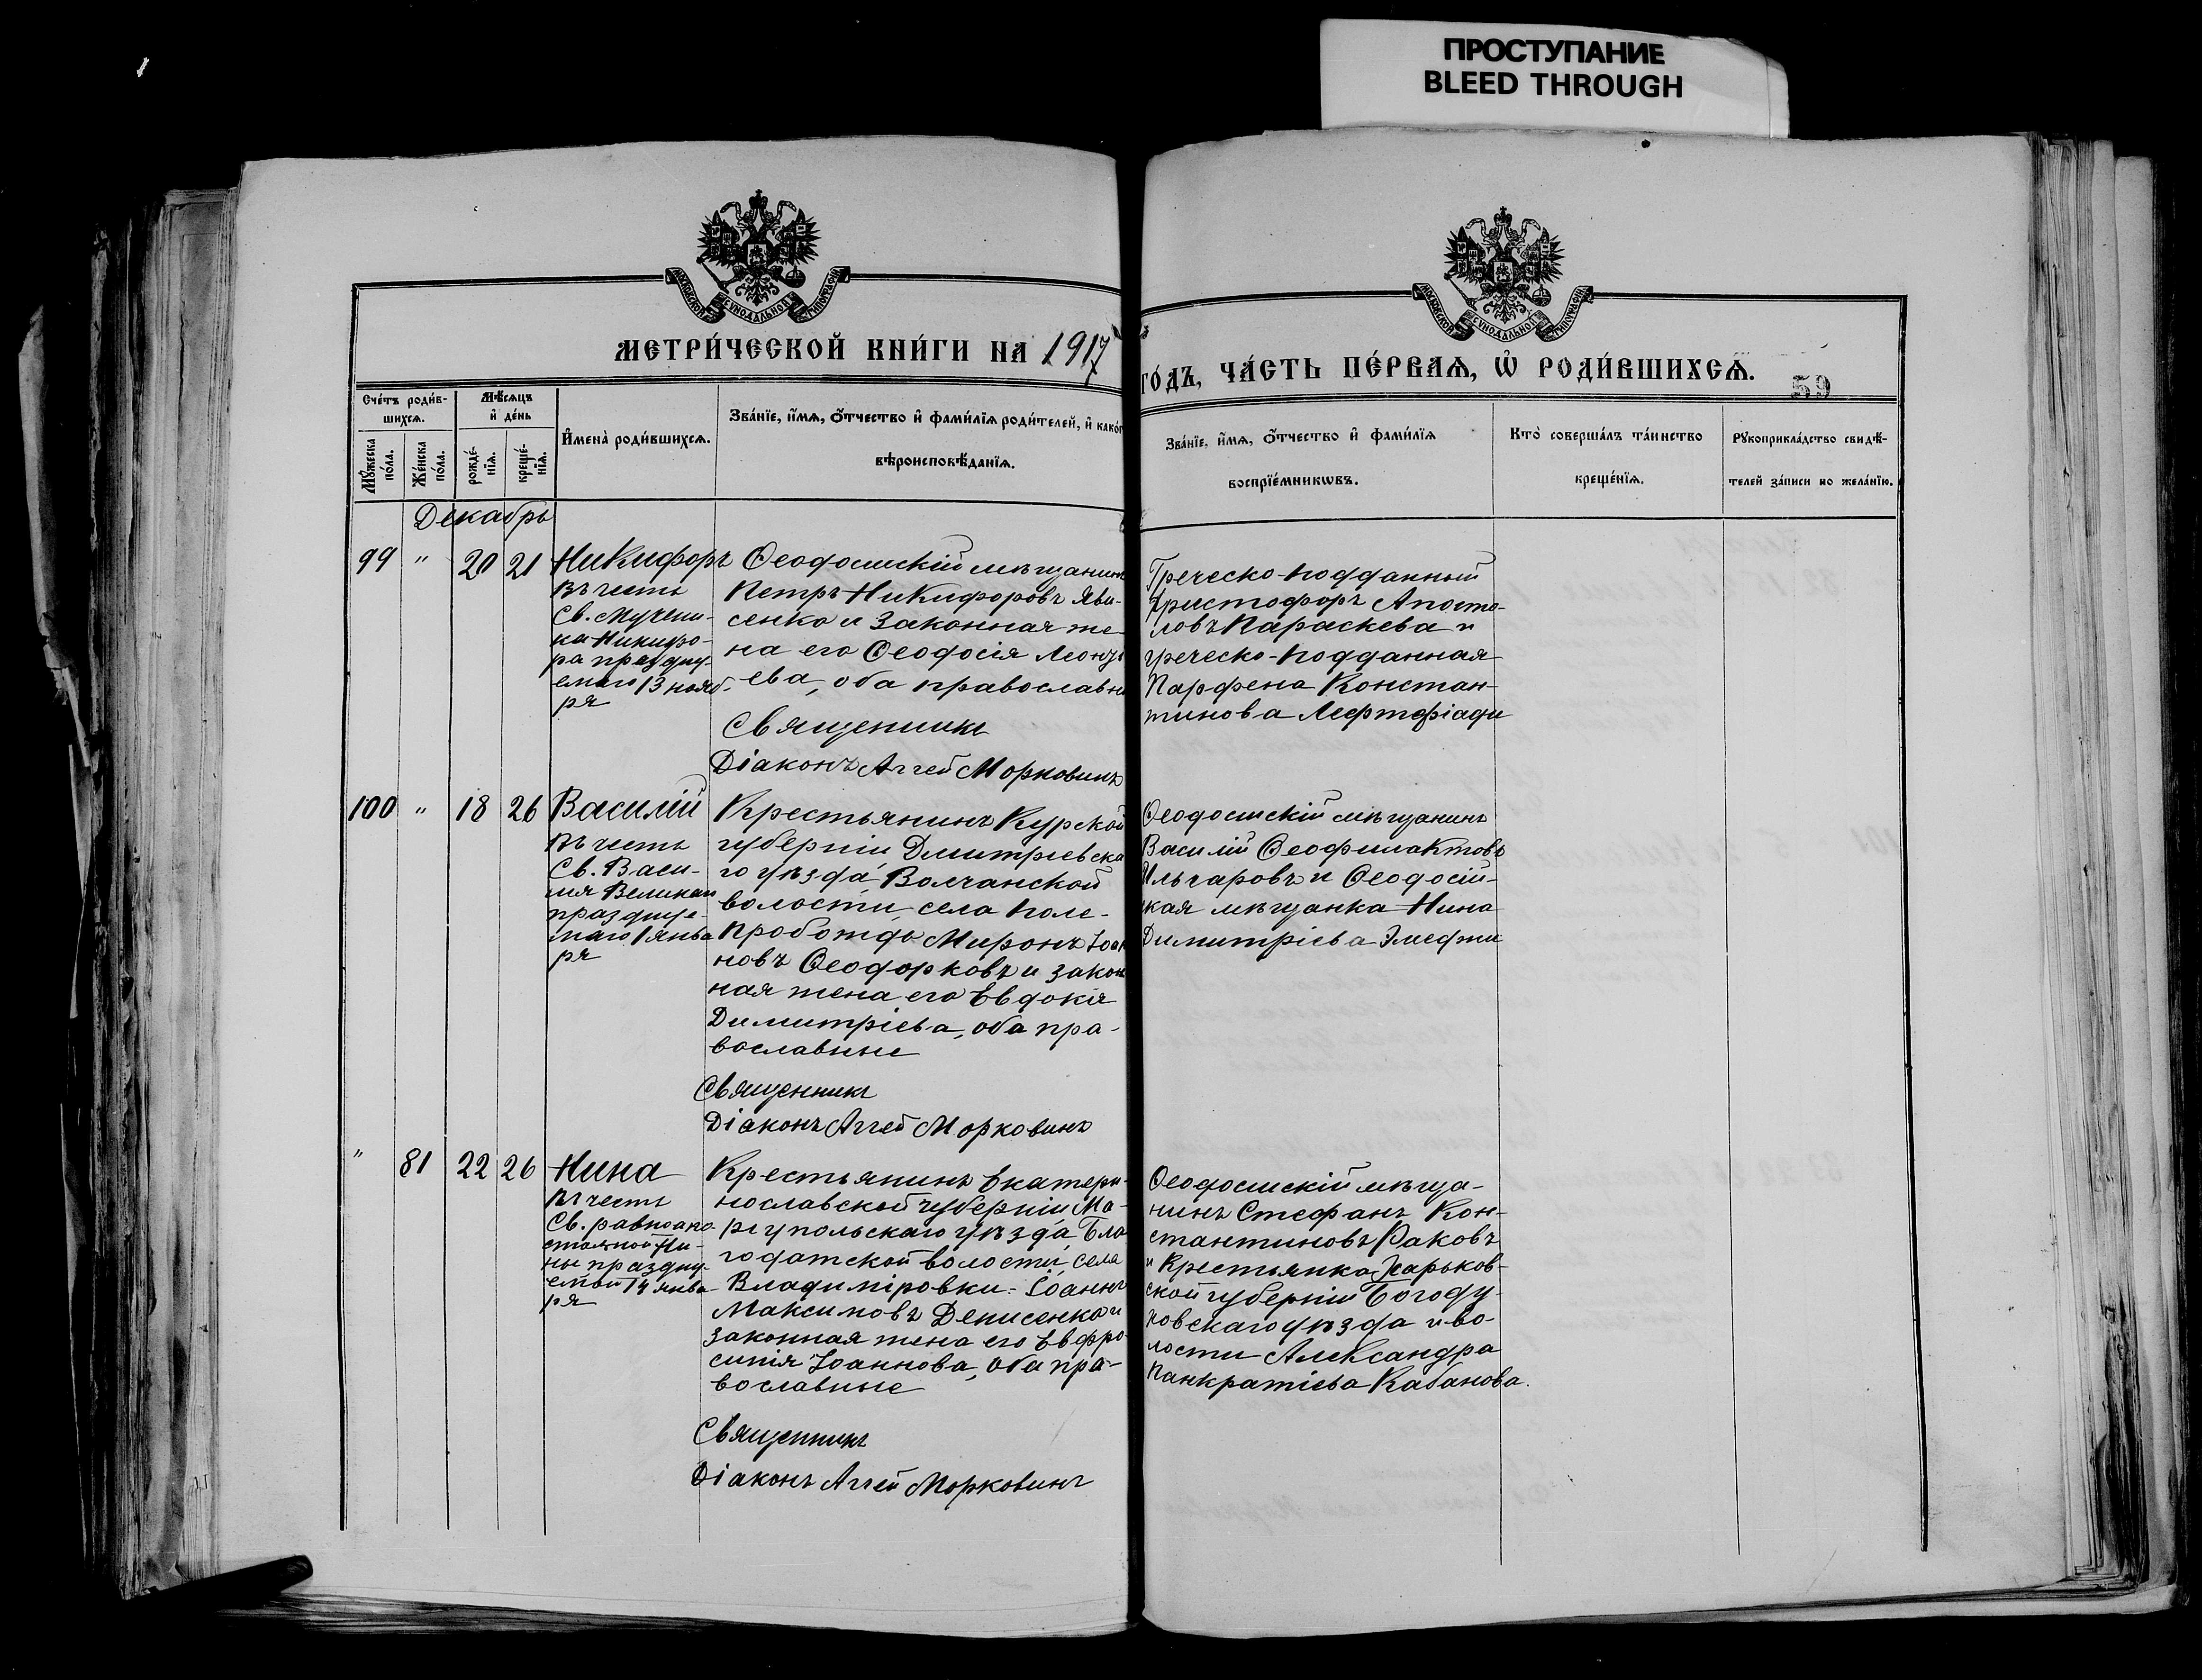 ПРОСТУПАНИЕ
BLEED THROUGH
МОСКОВСКОЙ СѴНОДАЛЬНОЙ ТИПОГРАФІИ
МОСКОВСКОЙ СѴНОДАЛЬНОЙ ТИПОГРАФІИ
МЕТРИ́ЧЕСКОЙ КНИ́ГИ НА 1917
ГО́ДЪ, ЧА́СТЬ ПЕ́РВАѦ, Ѡ҆ РОДИ́ВШИХСѦ.
59
Сче́тъ роди́в-
шихсѧ.
Мꙋ́жеска по́ла.
Же́нска по́ла.
Мѣ́сѧцъ
и҆ де́нь
рожде́-
нїѧ.
креще́-
нїѧ.
И҆мена̀ роди́вшихсѧ.
Зва́нїе, и҆́мѧ, ѻ҆́тчество и҆ фами́лїѧ роди́телей, и҆ како́г
вѣроисповѣ́данїѧ.
Зва́нїе, и҆́мѧ, ѻ҆́тчество и҆ фами́лїѧ
воспрїе́мникѡвъ.
Кто̀ соверша́лъ та́инство
креще́нїѧ.
Рꙋкоприкла́дство свидѣ́-
телей за́писи по жела́нїю.
Декабрь
99 " 20 21
Никифоръ
Въ честь
Св. Мучени-
ка Никифо-
ра праздну-
емаго 13 нояб-
ря
Ѳеодосійскій мѣщанинъ
Петръ Никифоровъ Яви-
сенко и законная же-
на его Ѳеодосія Леонть
ева, оба православн
Священникъ
Діаконъ Аггей Морковинъ
Греческо-подданный
Христофоръ Апосто-
ловъ Параскева и
греческо-подданная
Парфена Констан-
тинова Лефтеріади
100 " 18 26
Василій
Въ честь
Св. Васи-
лія Великаго
праздную-
маго 1 янва
ря
Крестьянинъ Курской
губерніи Дмитріевска
го уѣзда, Волчанской
волости, села Поле-
Пробожда Миронъ Іоан
новъ Ѳеодорковъ и закон
ная жена его Евдокія
Димитріева, оба пра-
вославные
Священникъ
Діаконъ Аггей Морковинъ
Ѳеодосійскій мѣщанинъ
Василій Ѳеофилактовъ
и Ѳеодосій-
ская мѣщанка Нина
Димитріева
" 81 22 26
Нина
Въ честь
Св. равноапо-
стольной Ни-
ны праздну-
емой 14 янва-
ря
Крестьянинъ Екатери-
нославской губерніи Ма-
ріупольскаго уѣзда, Бла
годатской волости, села
Владиміровки- Іоаннъ
Максимовъ Денисенко и
законная жена его Евфро-
синія Іоаннова, оба пра-
вославные
Священникъ
Діаконъ Аггей Морковинъ
Ѳеодосійскій мѣща-
нинъ Стефанъ Кон-
стантиновъ Раковъ
и Крестьянка Харьков-
ской губерніи Богоду-
ховскаго уѣзда и во-
лости Александра
Панкратіева Кабанова.